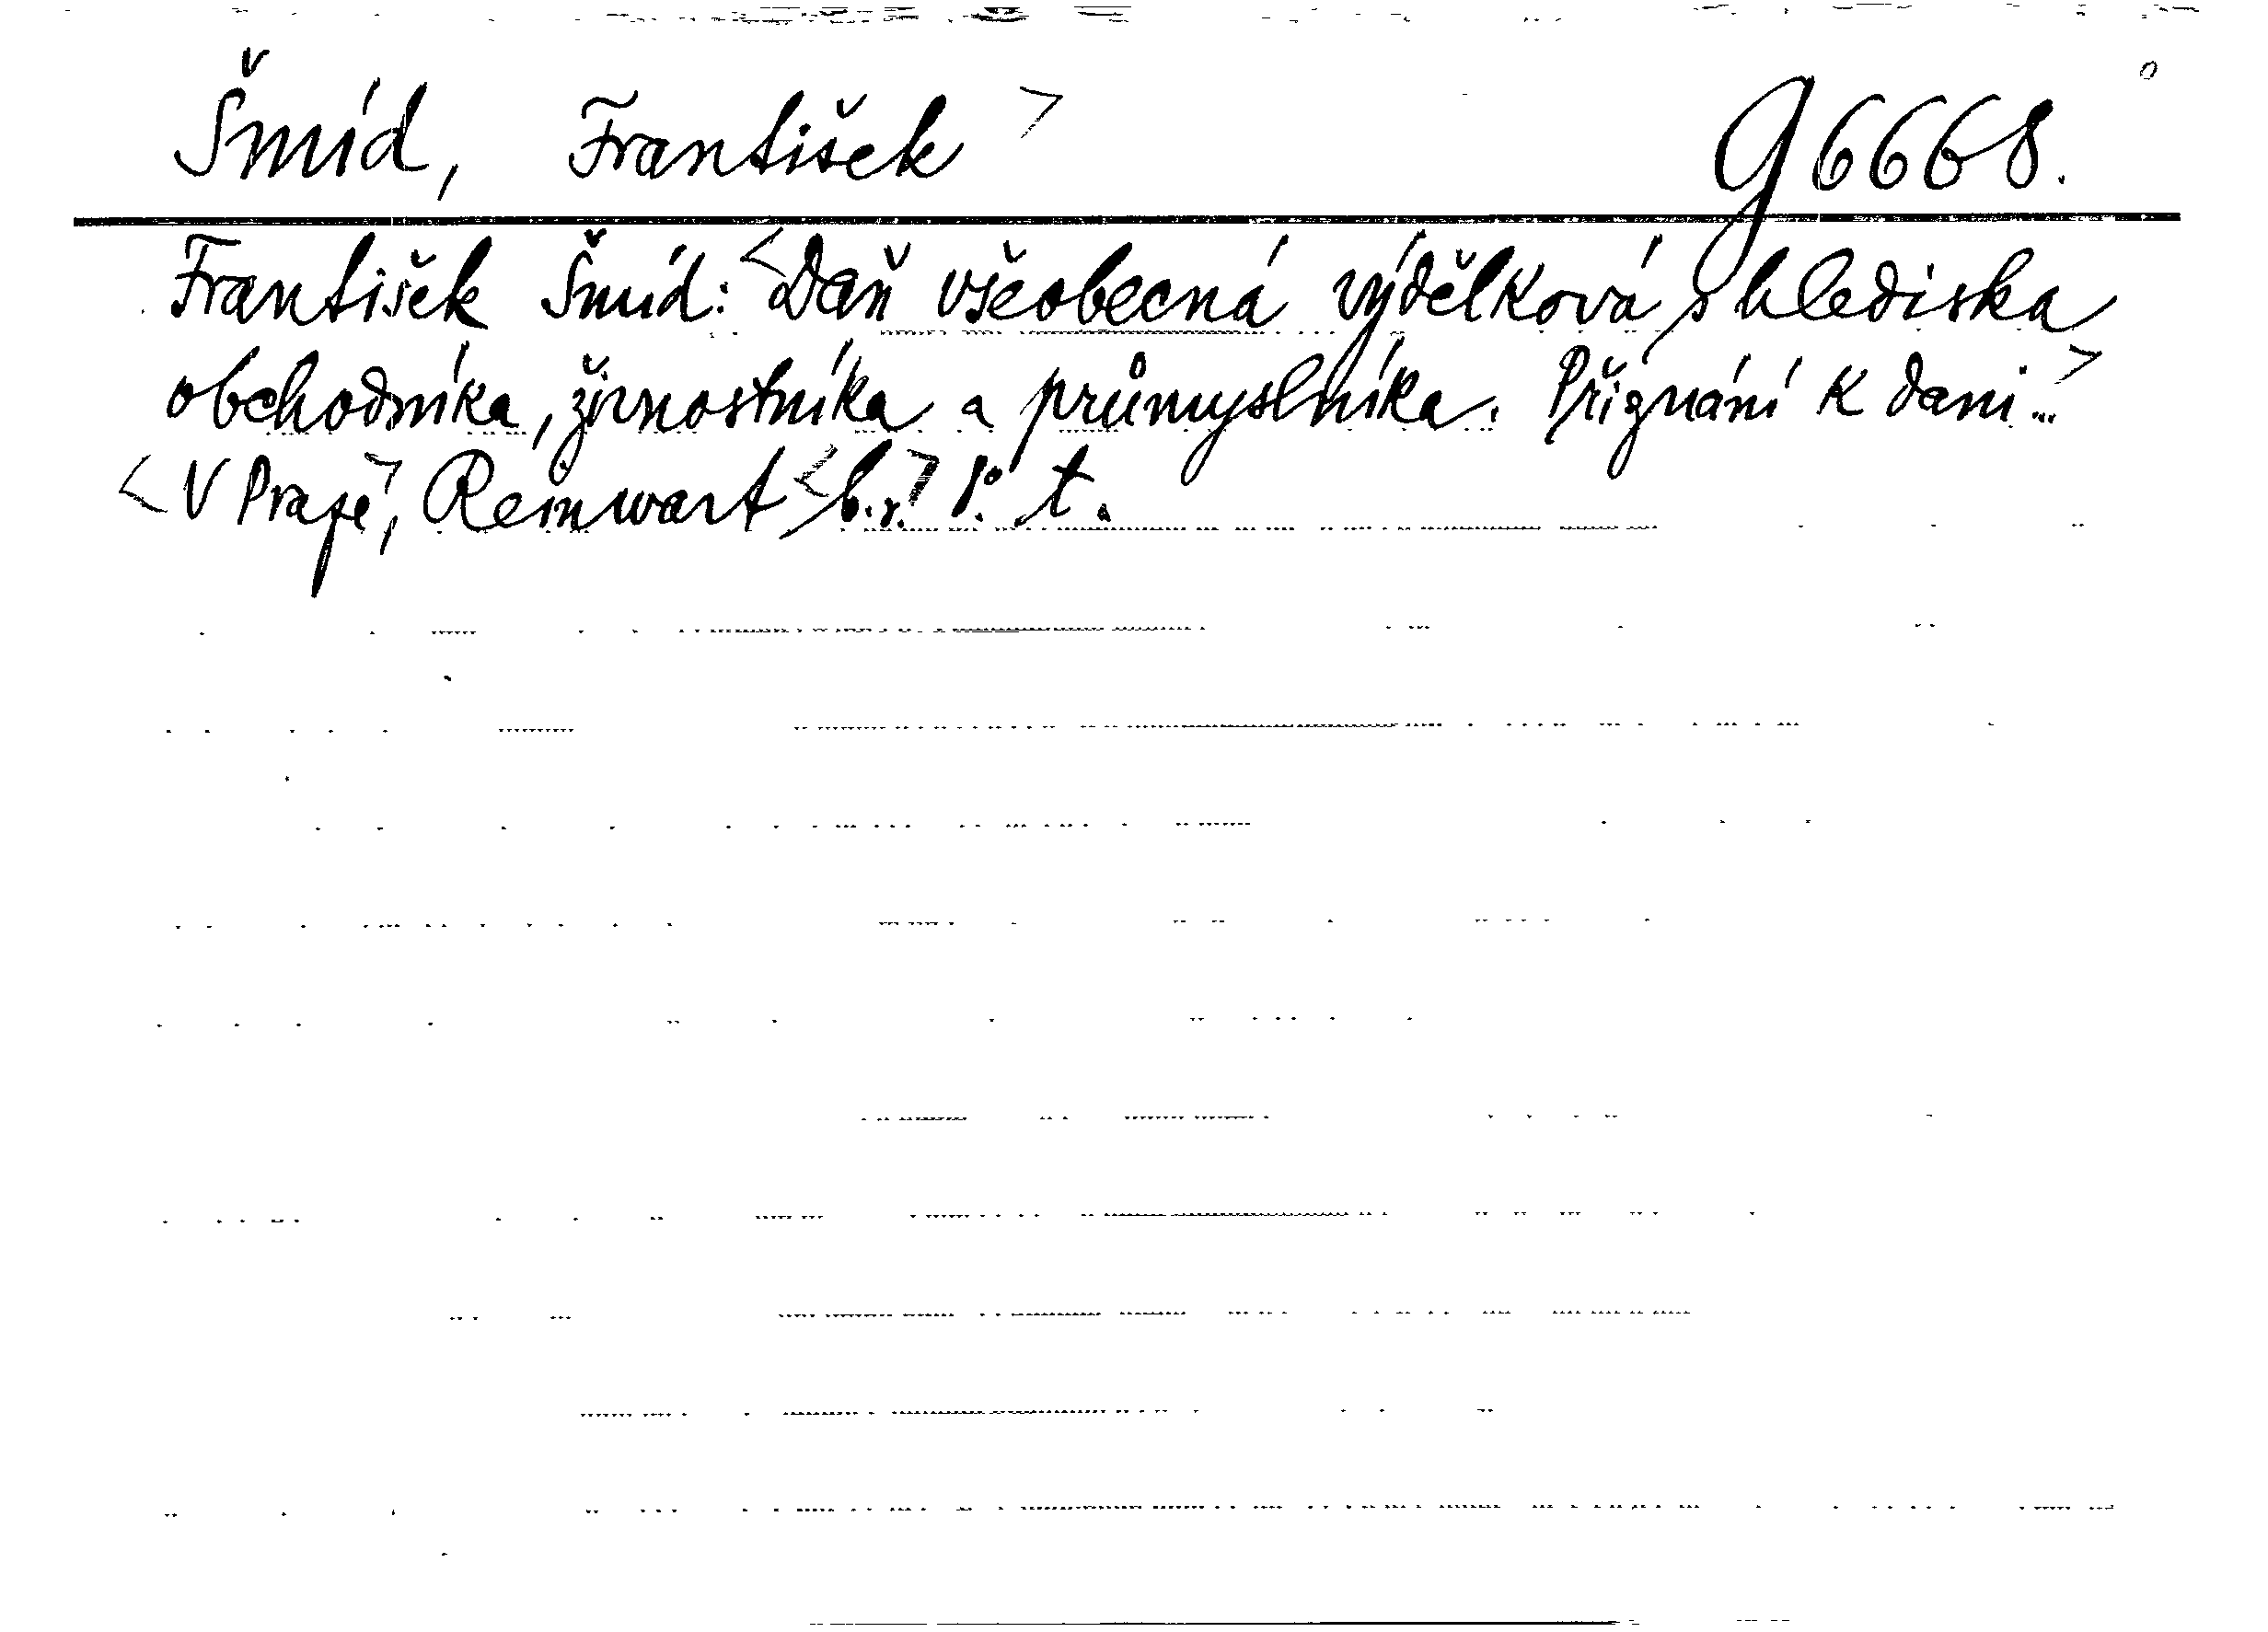 Šmíd, František > g 6668.
František Šmíd: <Daň všeobecná výdělková s hlediska
obchodníka, živnostníka a průmyslníka. Přiznání k dani...>
<V Praze>, Reinwart <b.r.> 8° t.